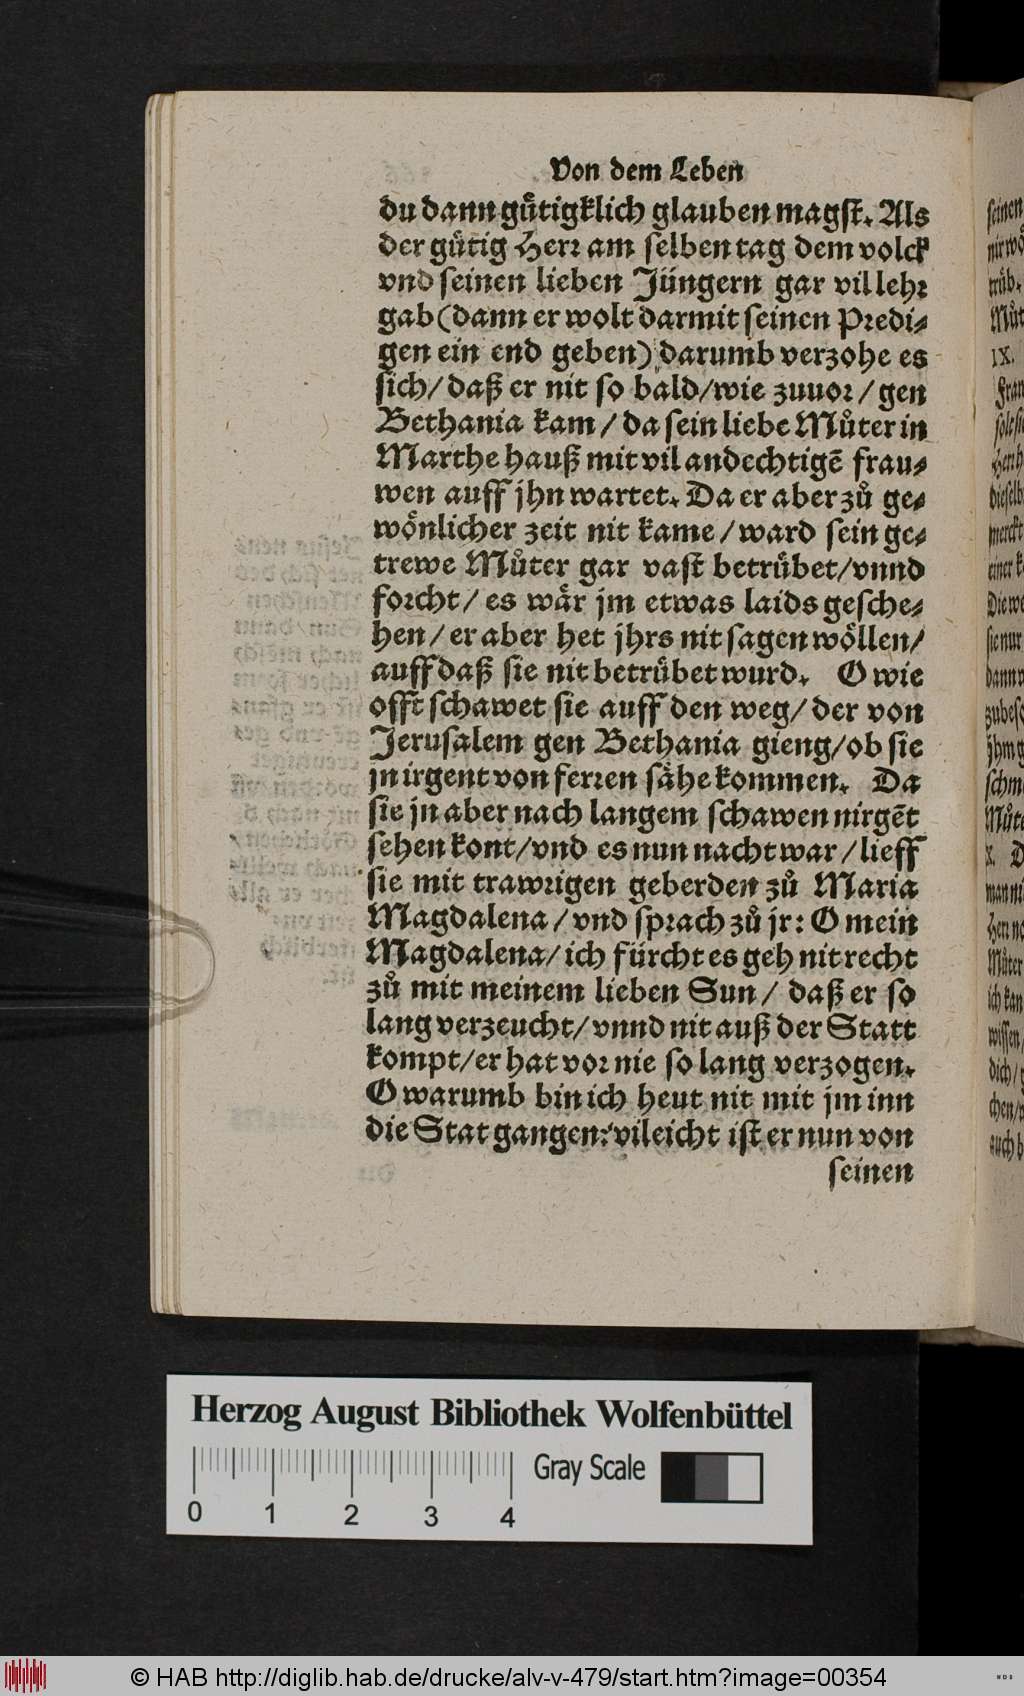 Von dem Leben
du dann guͤtigklich glauben magst. Als
der guͤtig Herr am selben tag dem volck
vnd seinen lieben Jüngern gar vil lehr
gab (dann er wolt darmit seinen Predi⸗
gen ein end geben) darumb verzohe es
sich/ daß er nit so bald/ wie zuuor/ gen
Bethania kam/ da sein liebe Muͦter in
Marthe hauß mit vil andechtigē frau⸗
wen auff jhn wartet. Da er aber zuͦ ge⸗
woͤnlicher zeit nit kame/ ward sein ge⸗
trewe Muͦter gar vast betruͤbet/ vnnd
forcht/ es waͤr jm etwas laids gesche⸗
hen/ er aber het jhrs nit sagen woͤllen/
auff daß sie nit betruͤbet wurd. O wie
offt schawet sie auff den weg/ der von
Jerusalem gen Bethania gieng/ ob sie
jn irgent von ferren saͤhe kommen. Da
sie jn aber nach langem schawen nirgēt
sehen kont/ vnd es nun nacht war/ lieff
sie mit trawrigen geberden zuͦ Maria
Magdalena/ vnd sprach zuͦ jr: O mein
Magdalena/ ich fürcht es geh nit recht
zuͦ mit meinem lieben Sun/ daß er so
lang verzeucht/ vnnd nit auß der Statt
kompt/ er hat vor nie so lang verzogen.
O warumb bin ich heut nit mit jm inn
die Stat gangen: vileicht ist er nun von
seinen
Herzog August Bibliothek Wolfenbüttel
Gray Scale
0 1 2 3 4
© HAB http://diglib.hab.de/drucke/alv-v-479/start.htm?image=00354